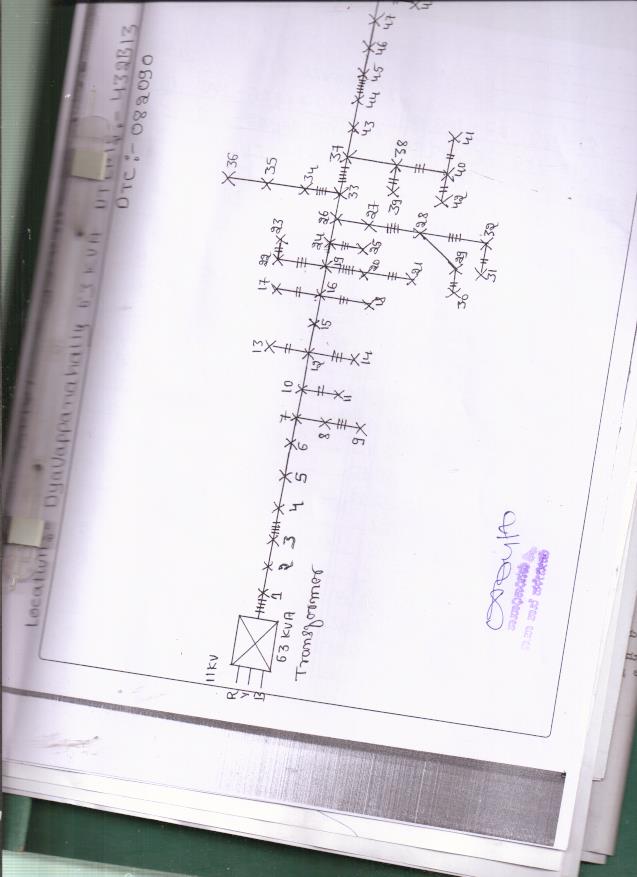 Location:- Dyavappanahally 63 KVA
DTC:- 082090
11 KV
R
Y
B
63 KVA
Transformer
1
2
3
4
5
6
7
8
9
10
11
12
13
14
15
16
17
18
19
20
21
22
23
24
25
26
27
28
29
30
31
32
33
34
35
36
37
38
39
40
41
42
43
44
45
46
47